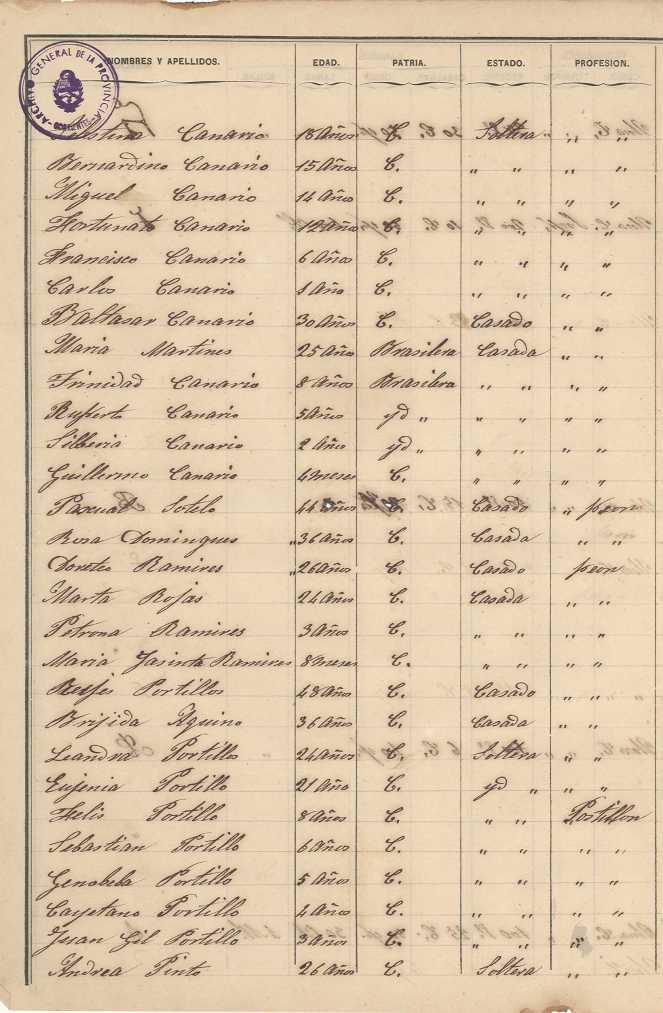 ARCHIVO GENERAL DE LA PROVINCIA
NOMBRES Y APELLIDOS. EDAD. PATRIA. ESTADO. PROFESION.
Canario 18 Años C. Soltera „ „
Bernardino Canario 15 Años C. „ „ „ „
Miguel Canario 14 Años C. „ „ „ „
Fortunato Canario 12 Años C. „ „ „ „
Francisco Canario 6 Años C. „ „ „ „
Carlos Canario 1 Año C. „ „ „ „
Baltasar Canario 30 Años C. Casado „ „
Maria Martines 25 Años Brasilera Casada „ „
Trinidad Canario 8 Años Brasilera „ „ „ „
Ruperto Canario 5 Años yd „ „ „ „ „
Silberia Canario 2 Año yd „ „ „ „ „
Guillermo Canario 4 meses C. „ „ „ „
Pascual Sotelo 44 Años C. Casado „ peon
Rosa Domingues „ 36 Años C. Casada „ „
Doroteo Ramires „ 26 Años C. Casado peon
Marta Rojas 24 Años C. Casada „ „
Petrona Ramires 3 Años C. „ „ „ „
Maria Jasinta Ramires 8 meses C. „ „ „ „
Reyes Portillos 48 Años C. Casado „ „ „
Brijida Aquino 36 Años C. Casada „ „
Leandra Portillo 24 Años C. Soltera „ „
Eujenia Portillo 21 Año C. yd „ „ „
Felis Portillo 8 Años C. „ „ Postillon
Sebastian Portillo 6 Años C. „ „ „ „
Genobeba Portillo 5 Años C. „ „ „ „
Cayetano Portillo 4 Años C. „ „ „ „
Juan Gil Portillo 3 Años C. „ „ „ „
Andrea Pinto 26 Años C. Soltera „ „